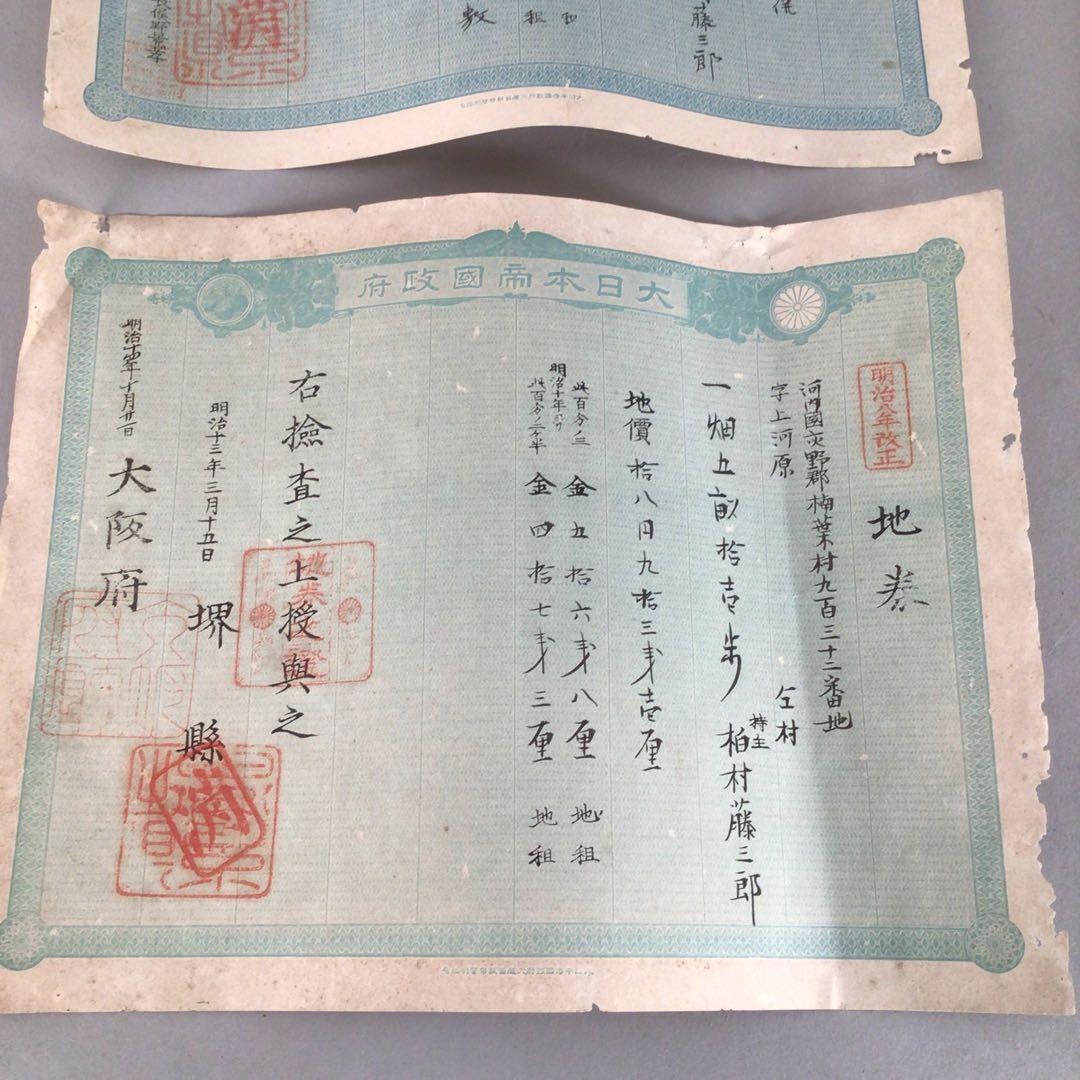 藤三郎
租
敷
大日本帝國政府
明治八年改正
地券
河内國交野郡楠葉村九百三十二番地
字上河原
仝村
一畑五畝拾壱歩
持主
柏村藤三郎
地價拾八円九拾三銭壱厘
此百分ノ三
金五拾六銭八厘
地租
明治十年ヨリ
此百分ノ二ケ半
金四拾七銭三厘
地租
右撿査之上授與之
明治十三年三月十五日
堺縣
明治十四年十月廿一日
大阪府